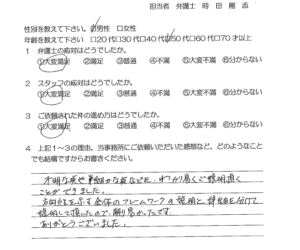 担当者 弁護士 時田 剛志
性別を教えて下さい。☑男性 □女性
年齢を教えて下さい □20代□30代□40代☑50代□60代□70才以上
1 弁護士の応対はどうでしたか。
①大変満足 ②満足 ③普通 ④不満 ⑤大変不満 ⑥分からない
2 スタッフの応対はどうでしたか。
①大変満足 ②満足 ③普通 ④不満 ⑤大変不満 ⑥分からない
3 ご依頼された件の進め方はどうでしたか。
①大変満足 ②満足 ③普通 ④不満 ⑤大変不満 ⑥分からない
4 上記1~3の理由、当事務所にご依頼いただいた感想など、どのようなこと
でも結構ですからお書きください。
不明な点や
わかり易くご説明頂く
ことができました。
全体のフレームワークの説明と 詳細を分けて
説明して頂いたので、解り易かったです。
ありがとうございました。